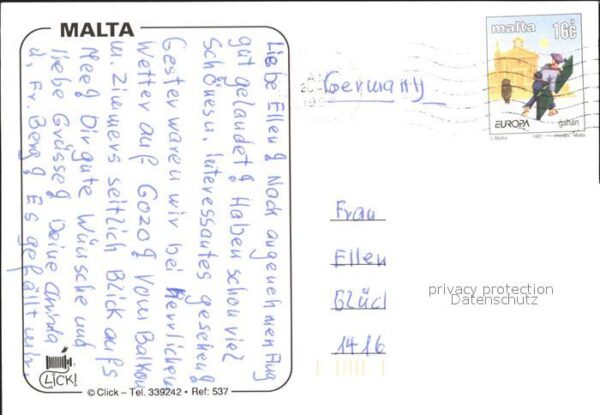 MALTA
Liebe Ellen! Nach angenehmen Flug
gut gelandet! Haben schon viel
Schönesu. Interessantes gesehen!
Gestern waren wir bei Herrlichem
Wetter auf Gozo! Vom Balkon
u. Zimmers seitlich Blick aufs
Meer! Dir gute Wünsche und
liebe Grüsse! Deine
u. Fr. Beng! Es gefällt uns.
CLICK!
© Click – Tel. 339242 • Ref: 537
malta 16c
EUROPA
gahan
J. Mallia 1997 Malta
Germany
Frau
Ellen
Glück
1416
privacy protection
Datenschutz